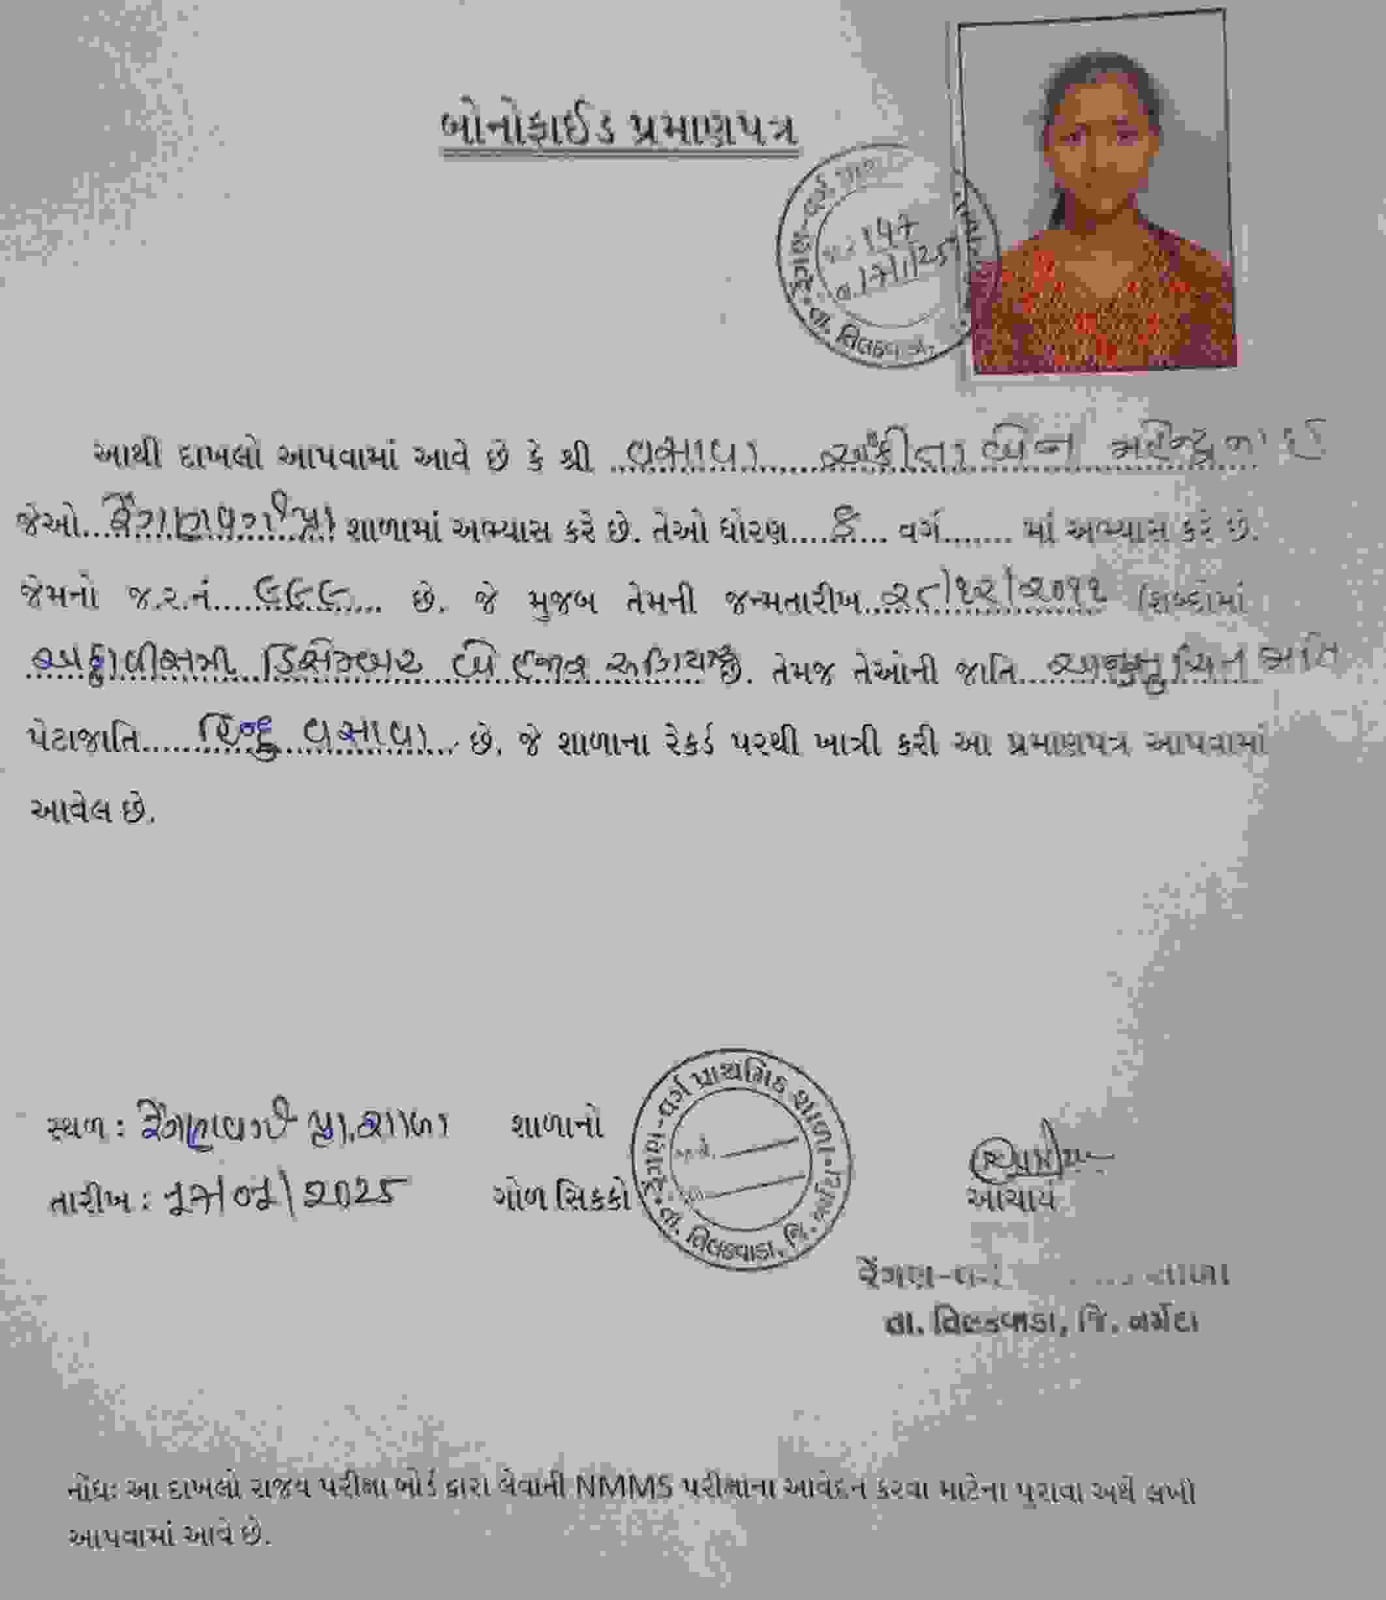 બોનોફાઈડ પ્રમાણપત્ર
147
17/1/25
તા. તિલકવાડા
આથી દાખલો આપવામાં આવે છે કે શ્રી વસાવા અંકીતાબેન મહેન્દ્રભાઈ
જેઓ રેંગણવગઈ પ્રા શાળામાં અભ્યાસ કરે છે. તેઓ ધોરણ ૮ વર્ગ માં અભ્યાસ કરે છે.
જેમનો જ.ર.નં. છે. જે મુજબ તેમની જન્મતારીખ ૨૮/૧૨/૨૦૧૧ (શબ્દોમાં
અઠ્ઠાવીસમી ડિસેમ્બર બે હજાર અગિયાર છે. તેમજ તેઓની જાતિ અનુસુચિત જાતિ
પેટાજાતિ હિન્દુ વસાવા છે. જે શાળાના રેકર્ડ પરથી ખાત્રી કરી આ પ્રમાણપત્ર આપવામાં
આવેલ છે.
સ્થળ : પ્રા. શાળા શાળાનો
તારીખ : 17/01/2025 ગોળ સિક્કો
રેંગણ-વર્ગ પ્રાથમિક શાળા
તા. તિલકવાડા, જિ.
આચાર્ય
રેંગણ શાળા
તા. તિલકવાડા, જિ. નર્મદા
નોંધઃ આ દાખલો રાજય પરીક્ષા બોર્ડ દ્વારા લેવાની NMMS પરીક્ષાના આવેદન કરવા માટેના પુરાવા અર્થે લખી
આપવામાં આવે છે.